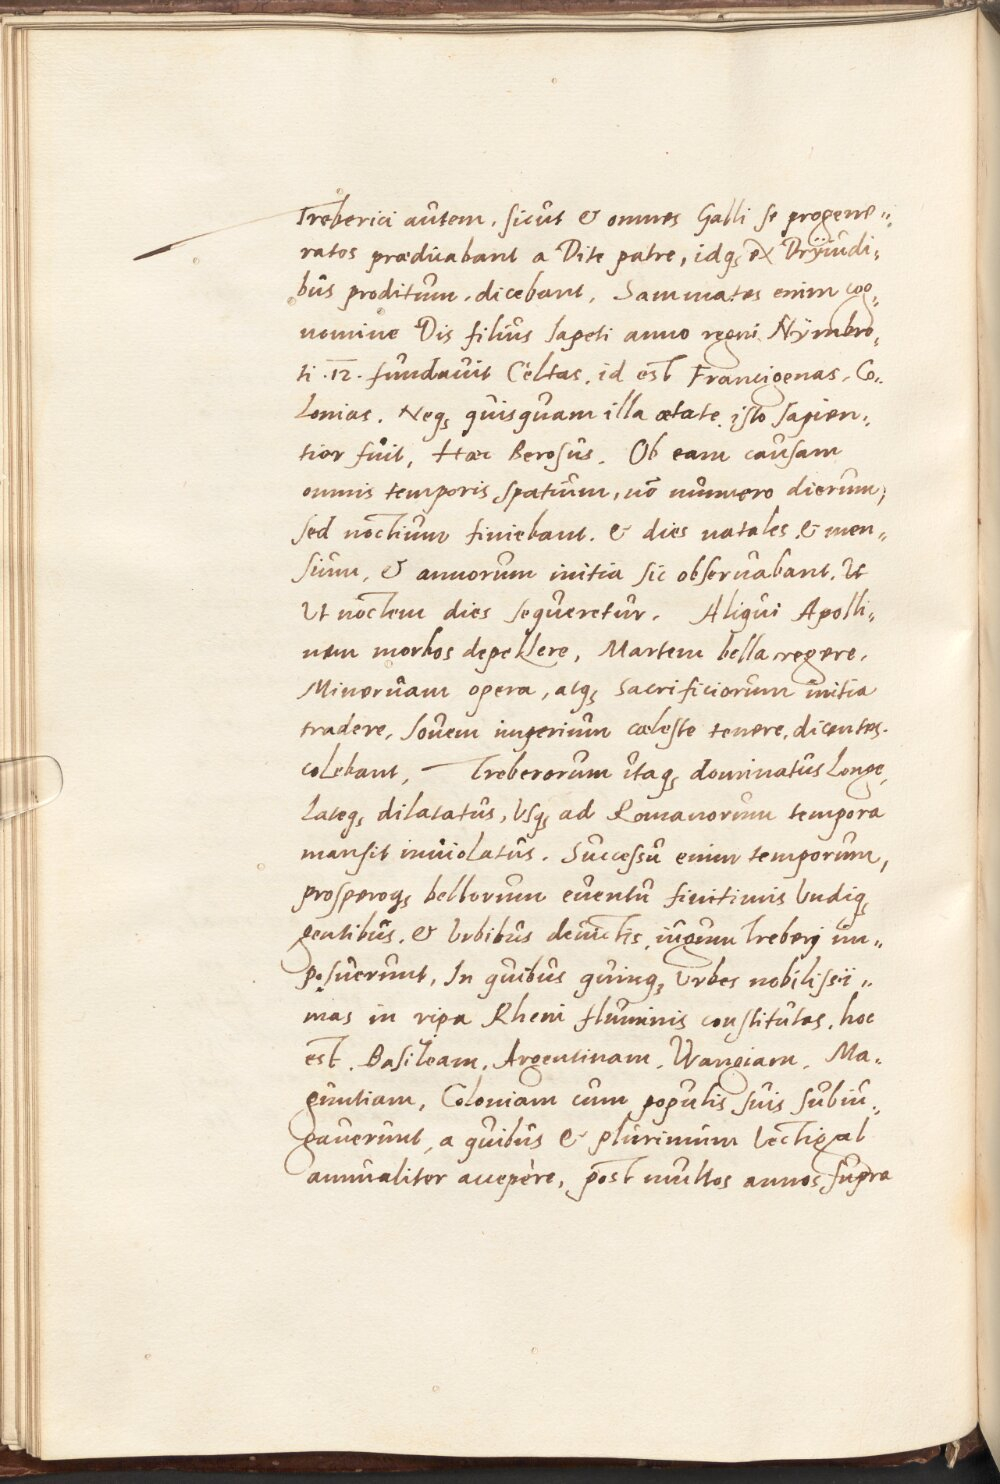 Treberici autem, sicut & omnes Galli se progene„
ratos prædicabant a Dite patre, idq; ex Drÿiudi„
bus proditum, dicebant, Sammates enim cog„
nomine Dis filius Iapeti anno regni Nÿmbro„
ti .12. fundauit Celtas, id est Francigenas, Co„
lonias. Neq; quisquam illa ætate isto sapien„
tior fuit, Hæc Berosus. Ob eam causam
omnis temporis spatium, nō numero dierum,
sed noctium finiebant, & dies natales, & men„
sium, & annorum initia sic obseruabant, Ut
Ut noctem dies sequeretur. Aliqui Apolli„
nem morbos depellere, Martem bella regere,
Mineruam opera, atq; sacrificiorum initia
tradere, Iouem imperium cæleste tenere, dicentes.
colebant, Treberorum itaq; dominatus longe,
lateq; dilatatus, Usq; ad Romanorum tempora
mansit inuiolatus. Successu enim temporum,
prosperoq; bellorum euentu finitimis Undiq;
gentibus, & Urbibus deuictis, iugum Treberj im„
posuerunt, In quibus quinq; Urbes nobilissi„
mas in ripa Rheni fluminis constitutas, hoc
est, Basileam, Argentinam, Wangiam, Ma„
guntiam, Coloniam cum populis suis subiu„
gauerunt, a quibus & plurimum Vectigal
annualiter accepère, post multos annos supra